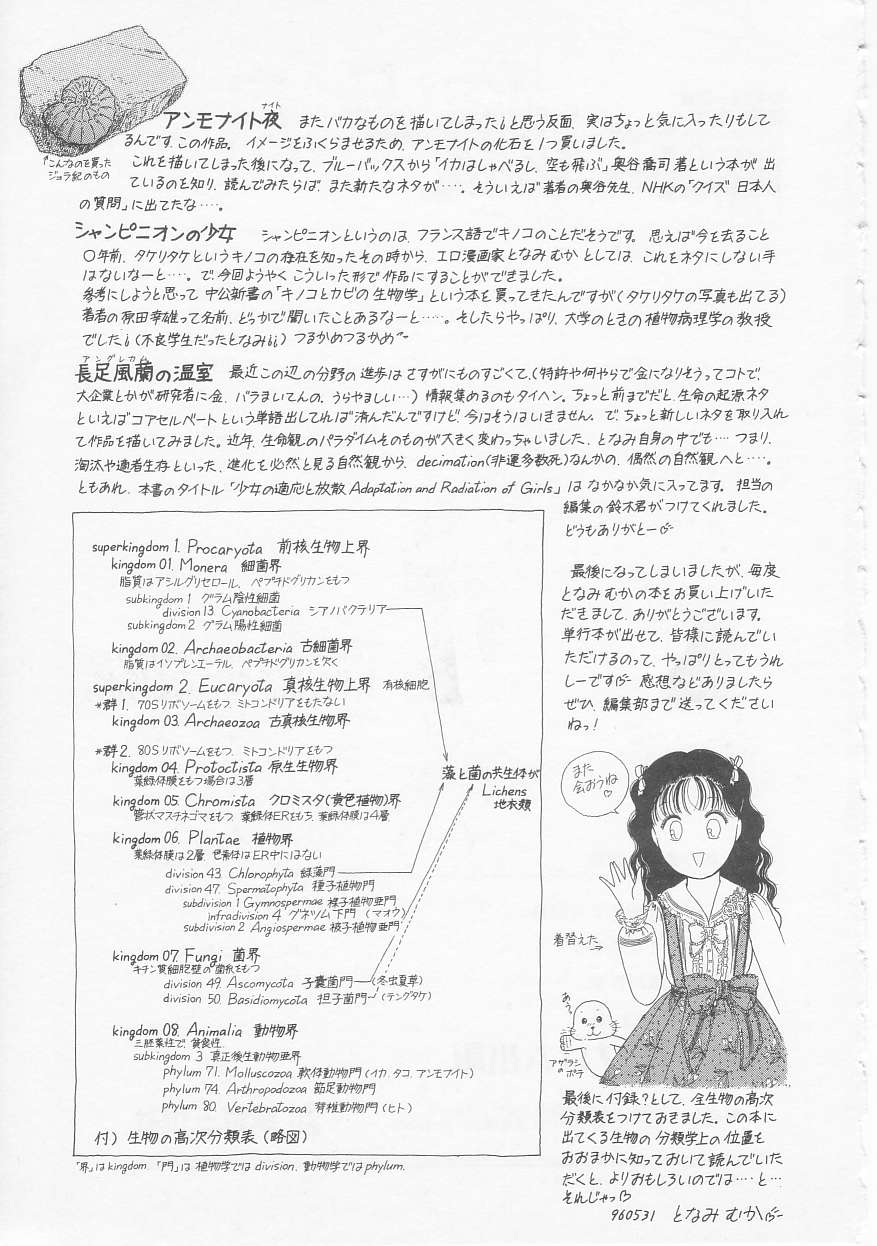 アンモナイト夜 またバカなものを描いてしまった!と思う反面、実はちょっと気に入ったりもして
ナイト
るんです、この作品。イメージをふくらませるため、アンモナイトの化石を1つ買いました。
これを描いてしまった後になって、ブルーバックスから「イカはしゃべるし、空も飛ぶ」奥谷喬司著という本が出
ているのを知り、読んでみたらば、また新たなネタが‥‥。そういえば著者の奥谷先生、NHKの「クイズ日本人
の質問」に出てたな‥‥。
↑こんなのを買った
ジュラ紀のもの
シャンピニオンの少女 シャンピニオンというのは、フランス語でキノコのことだそうです。思えば今を去ること
〇年前、タケリタケというキノコの存在を知ったその時から、エロ漫画家となみむかとしては、これをネタにしない手
はないなーと‥‥。で、今回ようやくこういった形で作品にすることができました。
参考にしようと思って中公新書の「キノコとカビの生物学」という本を買ってきたんですが(タケリタケの写真も出てる)
著者の原田幸雄って名前、どっかで聞いたことあるなーと‥‥。そしたらやっぱり、大学のときの植物病理学の教授
でした!(不良学生だったとなみ!!)つるかめつるかめ
アングレカム
長足風蘭の温室 最近この辺の分野の進歩はさすがにものすごくて、(特許や何やらで金になりそうってコトで、
大企業とかが研究者に金、バラまいてんの、うらやましい…)情報集めるのもタイヘン。ちょっと前までだと、生命の起源ネタ
といえばコアセルベートという単語出してれば済んだんですけど、今はそうはいきません。で、ちょっと新しいネタを取り入れ
て作品を描いてみました。近年、生命観のパラダイムそのものが大きく変わっちゃいました、となみ自身の中でも‥‥つまり、
淘汰や適者生存といった、進化を必然と見る自然観から、decimation(非運多数死)なんかの、偶然の自然観へと‥‥。
ともあれ、本書のタイトル「少女の適応と放散 Adaptation and Radiation of Girls」はなかなか気に入ってます。担当の
編集の鈴木君がつけてくれました。
どうもありがとー
最後になってしまいましたが、毎度
となみむかの本をお買い上げいた
だきまして、ありがとうございます。
単行本が出せて、皆様に読んでい
ただけるのって、やっぱりとってもうれ
しーです 感想などありましたら
ぜひ、編集部まで送ってください
ねっ!
superkingdom 1. Procaryota 前核生物上界
kingdom 01. Monera 細菌界
脂質はアシルグリセロール、ペプチドグリカンをもつ
subkingdom 1 グラム陰性細菌
division 13. Cyanobacteria シアノバクテリア
subkingdom 2 グラム陽性細菌
kingdom 02. Archaeobacteria 古細菌界
脂質はイソプレンエーテル、ペプチドグリカンを欠く
superkingdom 2. Eucaryota 真核生物上界 有核細胞
*群1. 70Sリボソームをもつ、ミトコンドリアをもたない
kingdom 03. Archaeozoa 古真核生物界
*群2. 80Sリボソームをもつ、ミトコンドリアをもつ
kingdom 04. Protoctista 原生生物界
葉緑体膜をもつ場合は3層
kingdom 05. Chromista クロミスタ(黄色植物)界
管状マスチネゴマをもつ、葉緑体ERをもち、葉緑体膜は4層
kingdom 06. Plantae 植物界
葉緑体膜は2層、色素体はER中にはない
division 43. Chlorophyta 緑藻門
division 47. Spermatophyta 種子植物門
subdivision 1 Gymnospermae 裸子植物亜門
infradivision 4 グネツム下門 (マオウ)
subdivision 2 Angiospermae 被子植物亜門
kingdom 07. Fungi 菌界
キチン質細胞壁の菌糸をもつ
division 49. Ascomycota 子嚢菌門 (冬虫夏草)
division 50. Basidiomycota 担子菌門 (テングタケ)
kingdom 08. Animalia 動物界
三胚葉性で、貪食性
subkingdom 3 真正後生動物亜界
phylum 71. Molluscozoa 軟体動物門(イカ、タコ、アンモナイト)
phylum 74. Arthropodozoa 節足動物門
phylum 80. Vertebratozoa 脊椎動物門(ヒト)
藻と菌の共生体が
Lichens
地衣類
付)生物の高次分類表(略図)
「界」はkingdom.「門」は植物学ではdivision、動物学ではphylum.
また
会おうね
♡
着替えた→
あう
アザラシ
のポテ
最後に付録?として、全生物の高次
分類表をつけておきました。この本に
出てくる生物の分類学上の位置を
おおまかに知っておいて読んでいた
だくと、よりおもしろいのでは‥‥と…
そんじゃっ
960531 となみむか